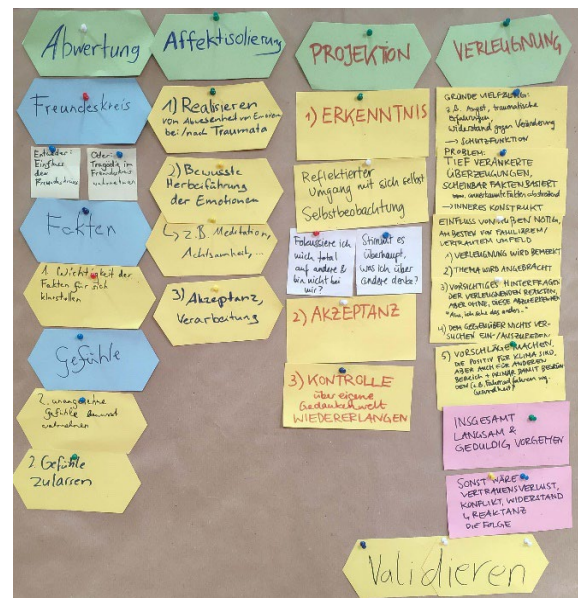 Abwertung
Freundeskreis
Entweder:
Einfluss
des
Freundeskreises
Oder:
Tragödie im
Freundeskreis
wahrnehmen
Fakten
1. Wichtigkeit der
Fakten für sich
klarstellen
Gefühle
2. unangenehme
Gefühle bewusst
wahrnehmen
2 Gefühle
zulassen
Affektisolierung
1) Realisieren
von Abwesenheit von Emotionen
bei/nach Traumata
2) Bewusste
Herbeiführung
der Emotionen
↳ z.B. Meditation,
Achtsamkeit, ...
3) Akzeptanz,
Verarbeitung
PROJEKTION
1) ERKENNTNIS
Reflektierter
Umgang mit sich selbst
Selbstbeobachtung
Fokussiere ich
mich total
auf andere &
bin nicht bei
mir?
Stimmt es
überhaupt,
was ich über
andere denke?
2) AKZEPTANZ
3) KONTROLLE
über eigene
Gedankenwelt
WIEDERERLANGEN
VERLEUGNUNG
GRÜNDE VIELFÄLTIG:
z.B. Angst, traumatische
Erfahrungen,
Widerstand gegen Veränderung
→ SCHUTZFUNKTION
PROBLEM:
TIEF VERANKERTE
ÜBERZEUGUNGEN,
SCHEINBAR FAKTENBASIERT
→ INNERES KONSTRUKT
EINFLUSS VON AUßEN NÖTIG,
AM BESTEN VON FAMILIÄREM/
VERTRAUTEM UMFELD
1) VERLEUGNUNG WIRD BEMERKT
2) THEMA WIRD ANGEBRACHT
3) VORSICHTIGES HINTERFRAGEN
DER VERLEUGNENDEN REAKTION,
ABER OHNE, DIESE ABZUWERTEN
4) DEM GEGENÜBER NICHTS VER-
SUCHEN EIN-/AUSZUREDEN
5) VORSCHLÄGE MACHEN,
DIE POSITIV FÜR KLIMA SIND,
ABER AUCH FÜR ANDEREN
BEREICH + PRIMÄR DAMIT BEGRÜN-
DEN (z.B. Fahrrad fahren wg.
Gesundheit)
INSGESAMT
LANGSAM &
GEDULDIG VORGEHEN
SONST WÄRE
VERTRAUENSVERLUST,
KONFLIKT, WIDERSTAND
& REAKTANZ
DIE FOLGE
Validieren